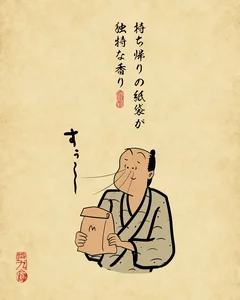 持ち帰りの紙袋が
独特な香り
すぅー
M